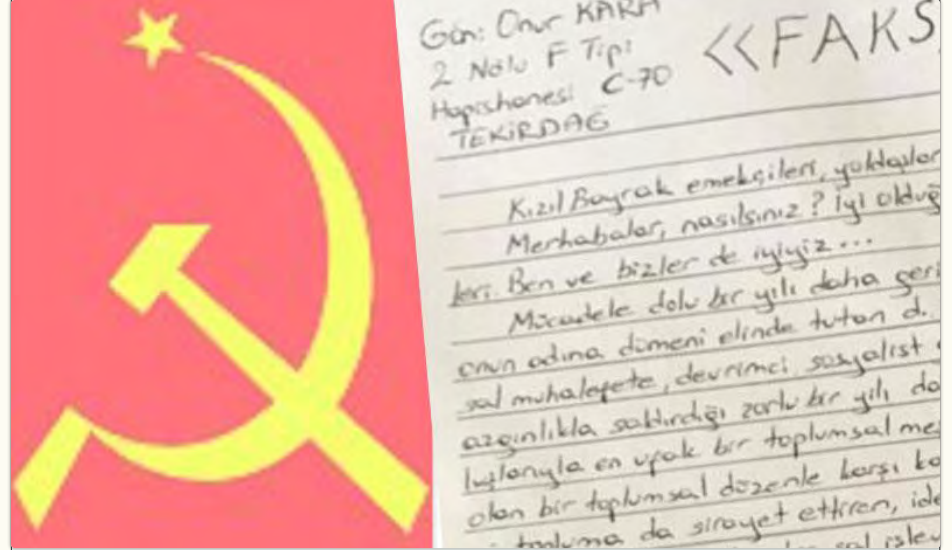 Gön: Onur KARA
2 Nolu F Tipi
Hapishanesi C-70
TEKİRDAĞ
<<FAKS
Kızıl Bayrak emekçileri, yoldaşlar
Merhabalar, nasılsınız? İyi olduğ
leri. Ben ve bizler de iyiyiz...
Mücadele dolu bir yılı daha geri
onun adına dümeni elinde tutan d.
sal muhalefete, devrimci sosyalist
azgınlıkla saldırdığı zorlu bir yılı da
luşlarıyla en ufak bir toplumsal me
olan bir toplumsal düzenle karşı ka
topluma da sirayet ettiren, ide
sal işlev